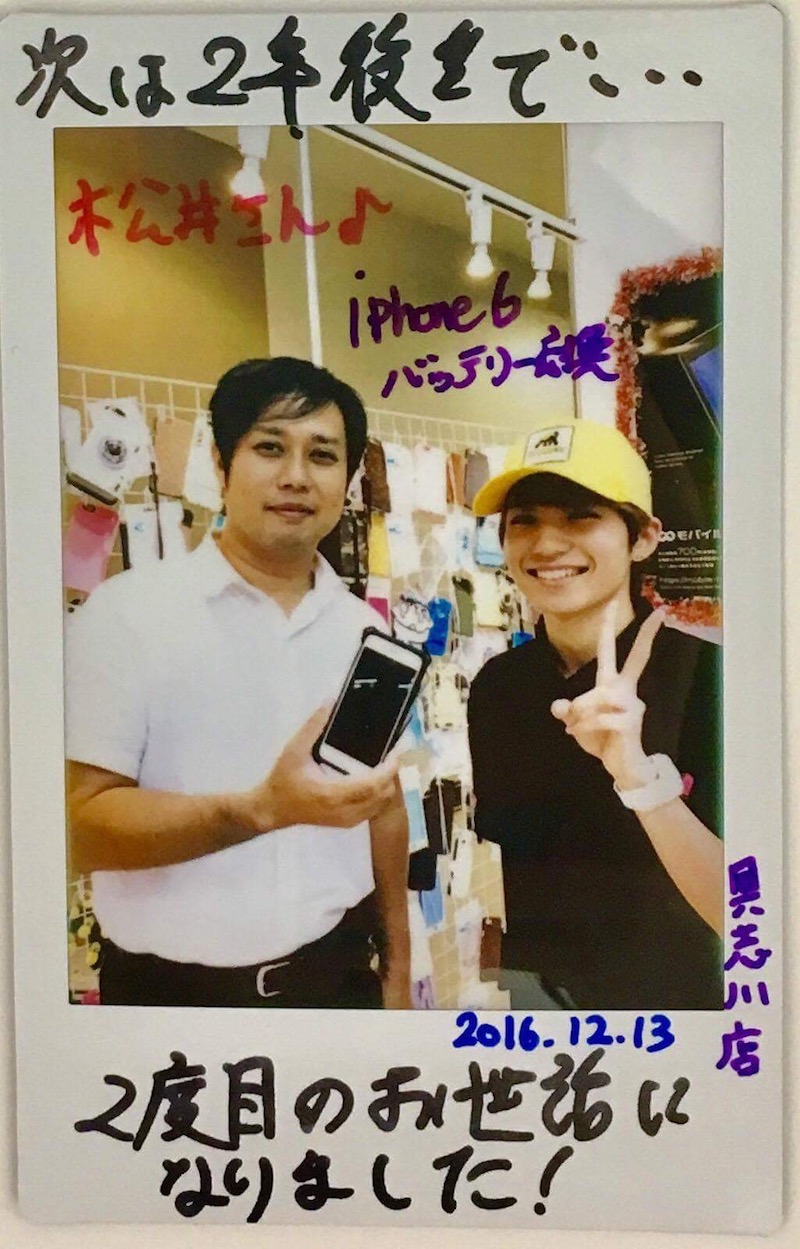 次は2年後まで…
松井さん♪
iphone6
バッテリー交換
モバイル
700
https://mobile
具志川店
2016.12.13
2度目のお世話に
なりました!